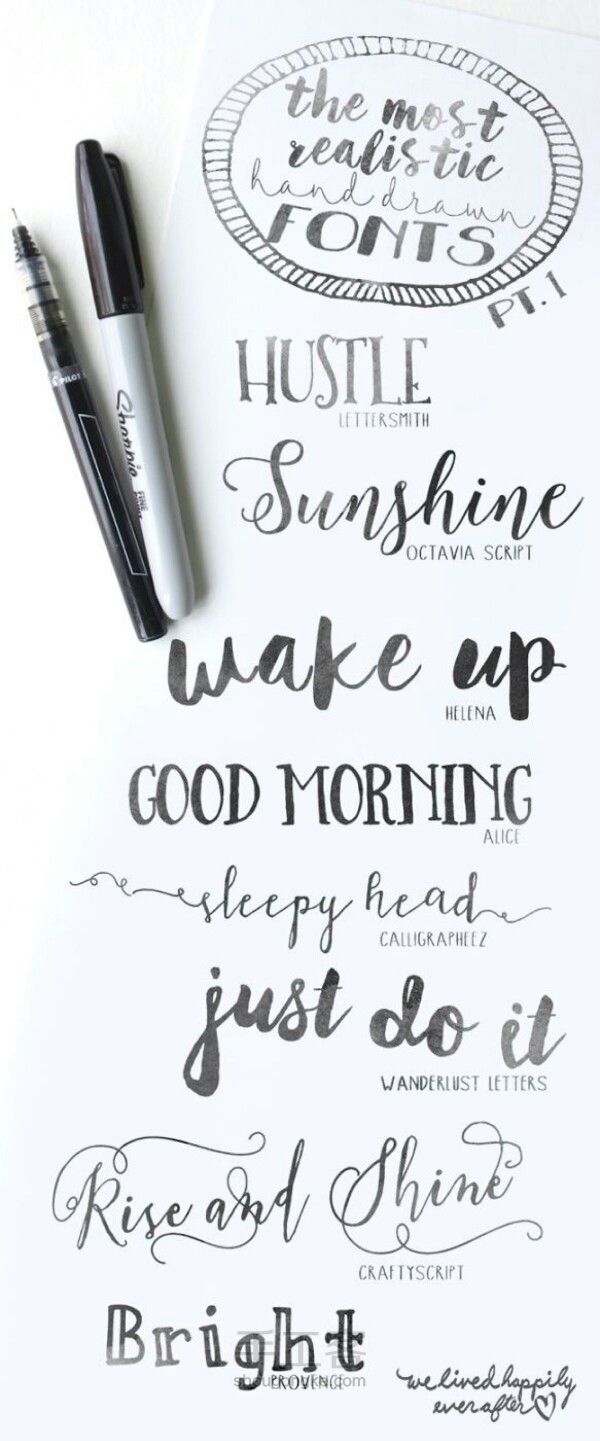 the most
realistic
hand drawn
FONTS
PT. 1
HUSTLE
LETTERSMITH
Sunshine
OCTAVIA SCRIPT
wake up
HELENA
GOOD MORNING
ALICE
sleepy head
CALLIGRAPHEEZ
just do it
WANDERLUST LETTERS
Rise and Shine
CRAFTYSCRIPT
Bright
PROVINCE
we lived happily
ever after
PILOT
Sharpie
FINE